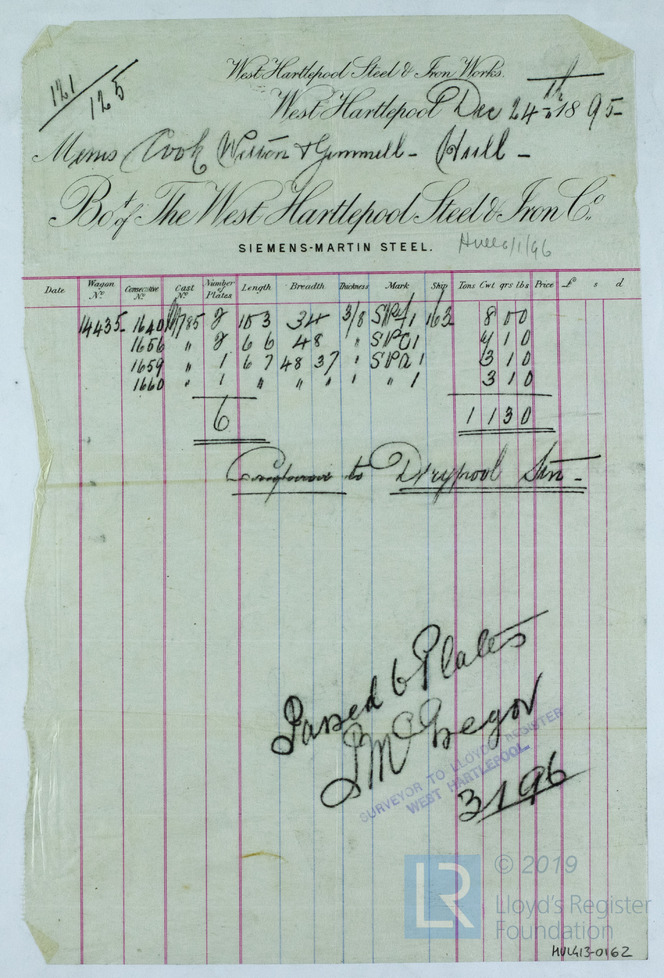 121
125
West Hartlepool Steel & Iron Works.
West Hartlepool Dec 24th 1895
Messrs Cook Welton & Gemmell - Hull -
Bot. of The West Hartlepool Steel & Iron Co.
SIEMENS-MARTIN STEEL. Hull 6/1/96
Date Wagon No. Consecutive No. Cast No. Number of Plates Length Breadth Thickness Mark Ship Tons Cwt qrs lbs Price £ s d
14435 1640 785 2 10 3 34 3/8 163 8 0 0
1656 " 2 6 6 48 " 4 1 0
1659 " 1 6 7 48 37 " 3 1 0
1660 " 1 " " " " " 1 3 1 0
6 1 1 3 0
to Drypool Stn -
Passed 6 Plates
J McGregor
SURVEYOR TO LLOYDS REGISTER
WEST HARTLEPOOL
3 1 96
LR
© 2019
Lloyd's Register
Foundation
HUL413-0162